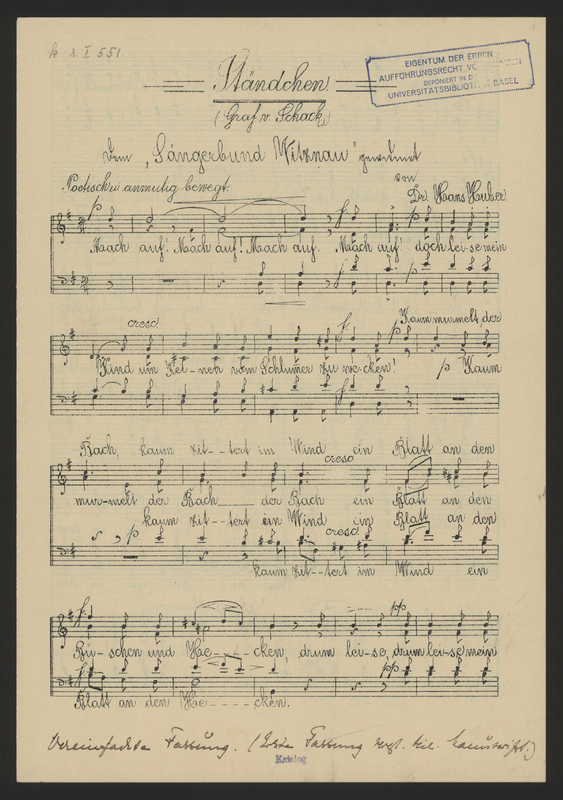 k r I 551
Ständchen.
(Graf v. Schack.)
EIGENTUM DER ERBEN
AUFFÜHRUNGSRECHT
DEPONIERT IN D
UNIVERSITÄTSBIBLIOT BASEL
Dem "Sängerbund Witznau" gewidmet
von
Poetisch u. anmutig bewegt.
Dr. Hans Huber
p f. p
Mach auf! Mach auf! Mach auf. Mach auf! doch lei-se mein
cresc. f. p Kaum murmelt der
Kind um Kei-nen vom Schlumer zu we-cken!
p Kaum
Bach, kaum zit--tert im Wind ein Blatt an den
cresc
mur-melt der Bach der Bach ein Blatt an den
kaum zit--tert ein Wind ein Blatt an den
cresc.
kaum zit--tert im Wind ein
f. pp
Bü-schen und He----cken, drum lei-se, drum lei-se mein
f. pp
Blatt an den He----cken.
Vereinfachte Fassung. (Erste Fassung
Katalog